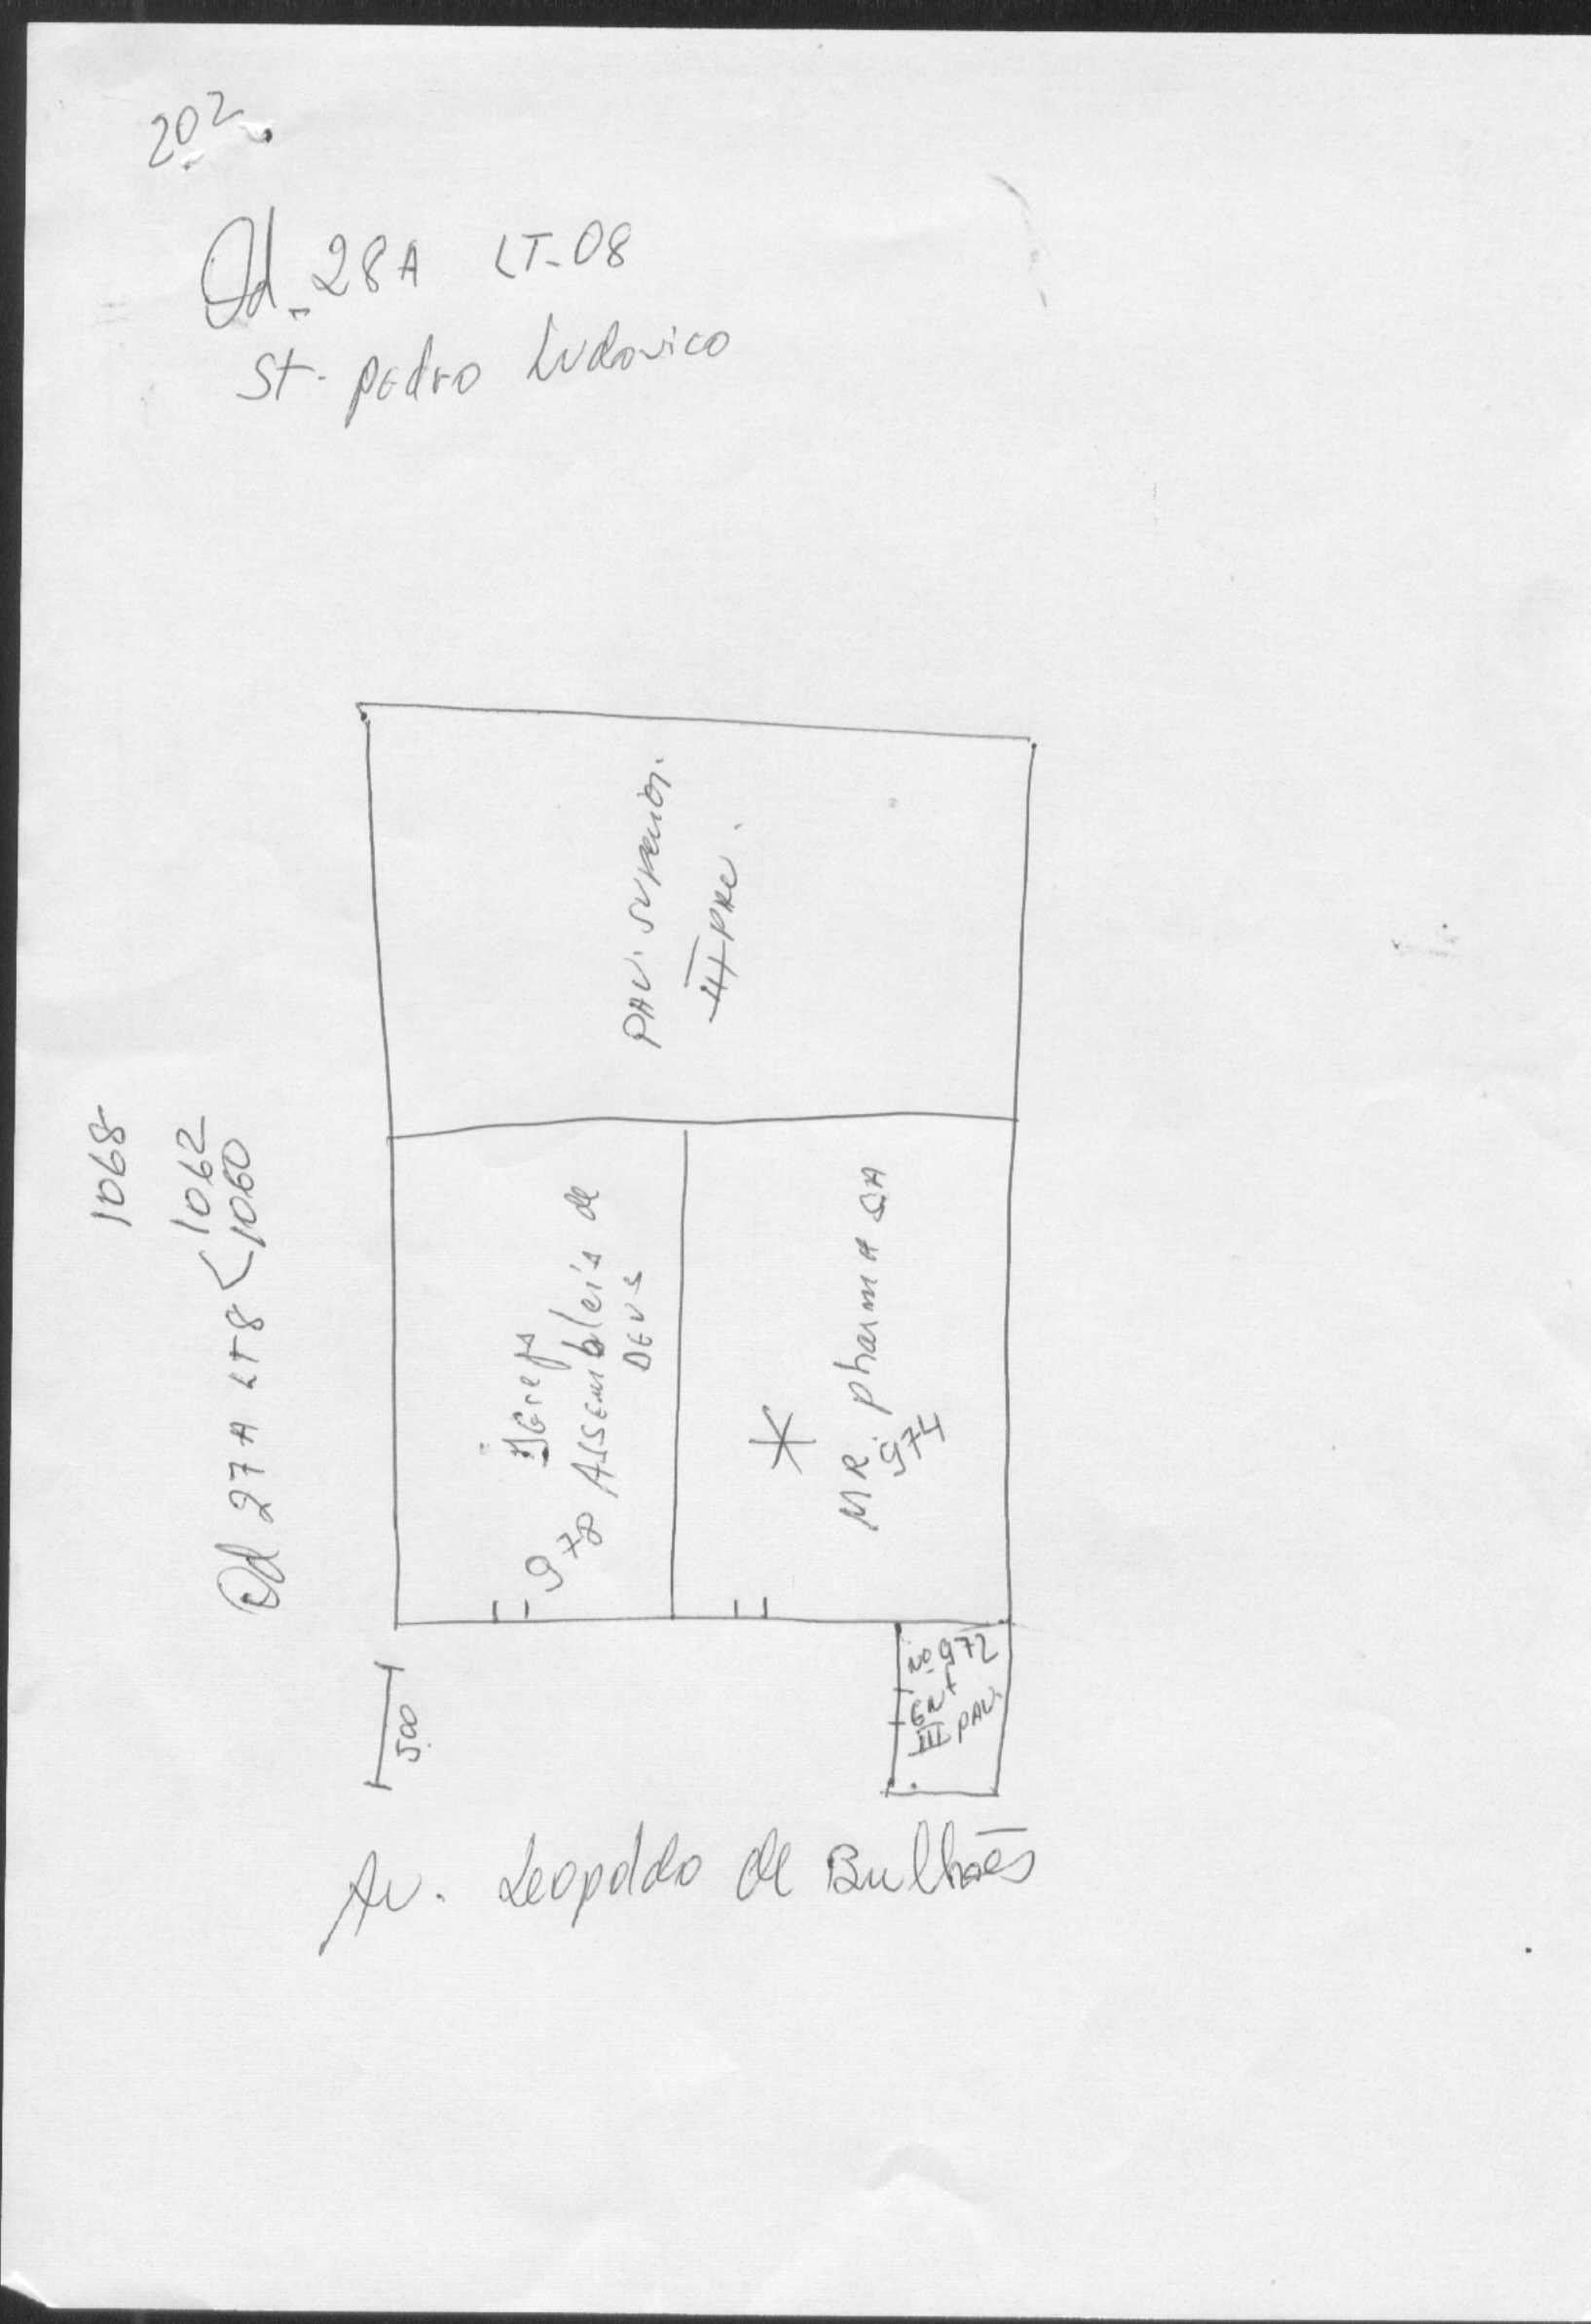 202
Qd- 28A LT-08
St. pedro Ludovico
PAV. superior.
1068
1062
Qd 27A LT8 < 1060
IGreja
978 Assembleia de
DEUS
MR. pharm A
974
500
no 972
Ent
III PAV.
Av. Leopoldo de Bulhões